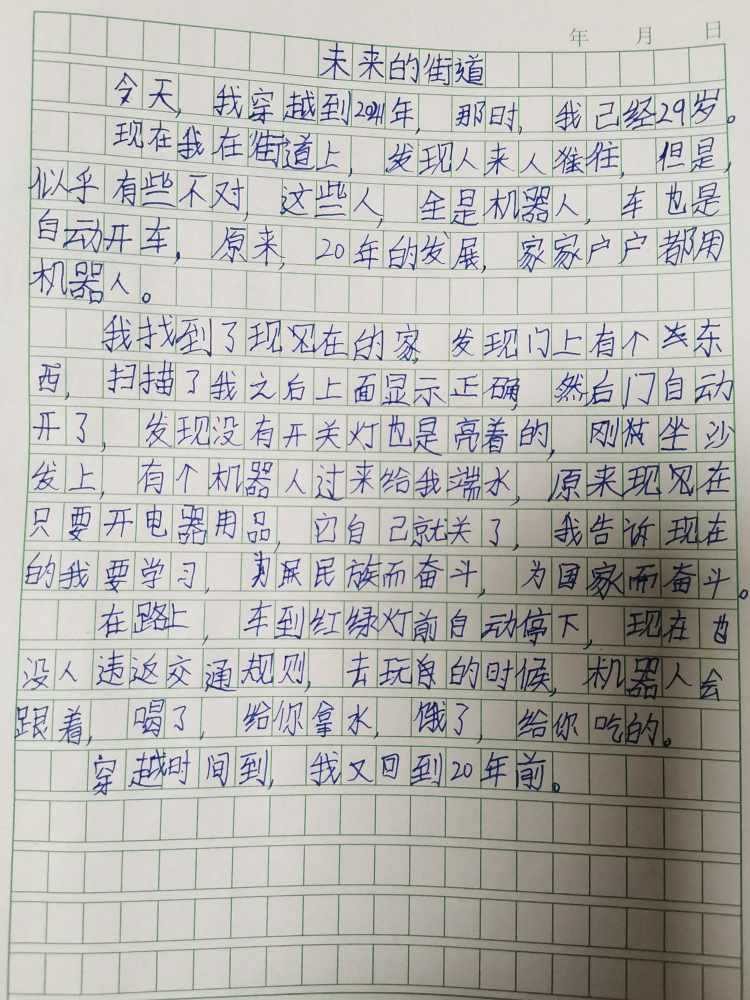 年 月 日
未来的街道
今天，我穿越到2041年，那时，我已经29岁。
现在我在街道上，发现人来人往，但是，
似乎有些不对，这些人，全是机器人，车也是
自动开车，原来，20年的发展，家家户户都用
机器人。
我找到了现在的家，发现门上有个东
西，扫描了我之后上面显示正确，然后门自动
开了，发现没有开关灯也是亮着的，刚坐沙
发上，有个机器人过来给我端水，原来现在
只要开电器用品，它自己就关了，我告诉现在
的我要学习，为民族而奋斗，为国家而奋斗。
在路上，车到红绿灯前自动停下，现在也
没人违返交通规则，去玩的时候，机器人会
跟着，喝了，给你拿水，饿了，给你吃的。
穿越时间到，我又回到20年前。